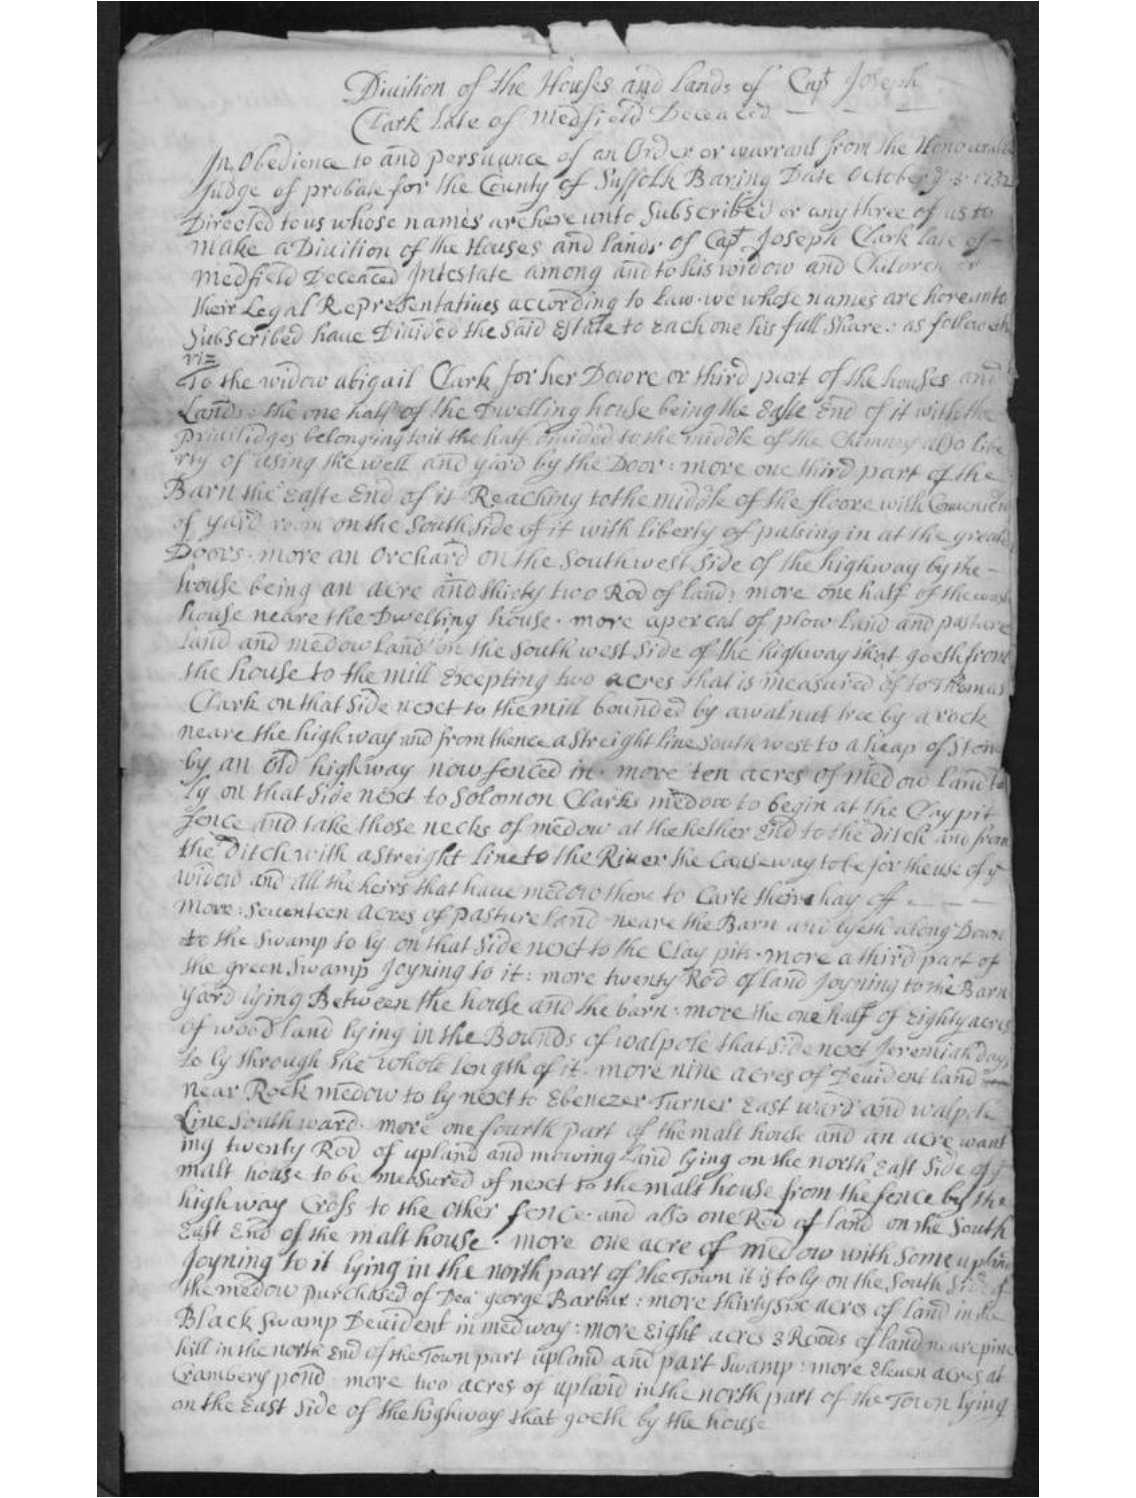 Diuition of the Houses and lands of Capt Joseph
Clark late of Medfield Deceaced
In Obedience to and persuance of an Order or warrant from the Honourable
Judge of probate for the County of Suffolk Baring Date October 1732
Directed to us whose names are here unto Subscribed or any three of us to
make a Diuition of the Houses and lands of Capt Joseph Clark late of
medfield Deceaced Intestate among and to his widow and Children or
their Legal Representatiues according to Law we whose names are hereunto
Subscribed have Diuided the Said Estate to Each one his full Share: as followeth
viz
To the widow abigail Clark for her Dowre or third part of the houses and
Lands: the one half of the Dwelling house being the Easte End of it with the
Priuilidges belonging to it the half diuided to the middle of the Chimny also libe
rty of using the well and yard by the Door: more one third part of the
Barn the Easte End of it Reaching to the middle of the floore with
of yard room on the South Side of it with liberty of passing in at the greate
Doors. more an Orchard on the Southwest Side of the highway by the
house being an acre and thirty two Rod of land: more one half of the
house neare the Dwelling house. more apercal of plow Land and pasture
land and medow Land on the South west Side of the highway that goeth from
the house to the mill Excepting two acres that is measured of to Thomas
Clark on that Side next to the mill bounded by a walnut tree by a rock
neare the highway and from thence a Streight line South west to a heap of Stone
by an old highway now fenced in. more ten acres of medow Land to
ly on that Side next to Solomon Clarks medow to begin at the Clay pit
fence and take those necks of medow at the hether End to the ditch and from
the Ditch with a Streight line to the Riuer the Causeway to be for the use of ye
widow and all the heirs that have medow there to Carte their hay off
more: Seuenteen Acres of pasture land neare the Barn and lyeth along Down
to the Swamp to ly on that Side next to the Clay pits. more a third part of
the green Swamp Joyning to it: more twenty Rod of land Joyning to the Barn
yard lying Between the house and the barn: more the one half of Eighty acres
of wood land lying in the Bounds of walpole that Side next Jeremiah days
to ly through the whole length of it. more nine acres of Deuident land
near Rock medow to ly next to Ebenezer Turner East ward and walpole
Line South ward. more one fourth part of the malt house and an acre want
ing twenty Rod of upland and mowing Land lying on the north East Side of ye
malt house to be measured of next to the malt house from the fence by the
highway Cross to the other fence. and also one Rod of land on the South
East End of the malt house. more one acre of medow with Some upland
Joyning to it lying in the north part of the Town it is to ly on the South Side of
the medow purchased of Dea george Barbur: more thirty six acres of land in the
Black Swamp Deuident in medway: more Eight acres 3 Roods of land neare pine
hill in the north End of the Town part upland and part Swamp: more Eleuen acres at
Crambery pond more two acres of upland in the north part of the Town lying
on the East Side of the highway that goeth by the house